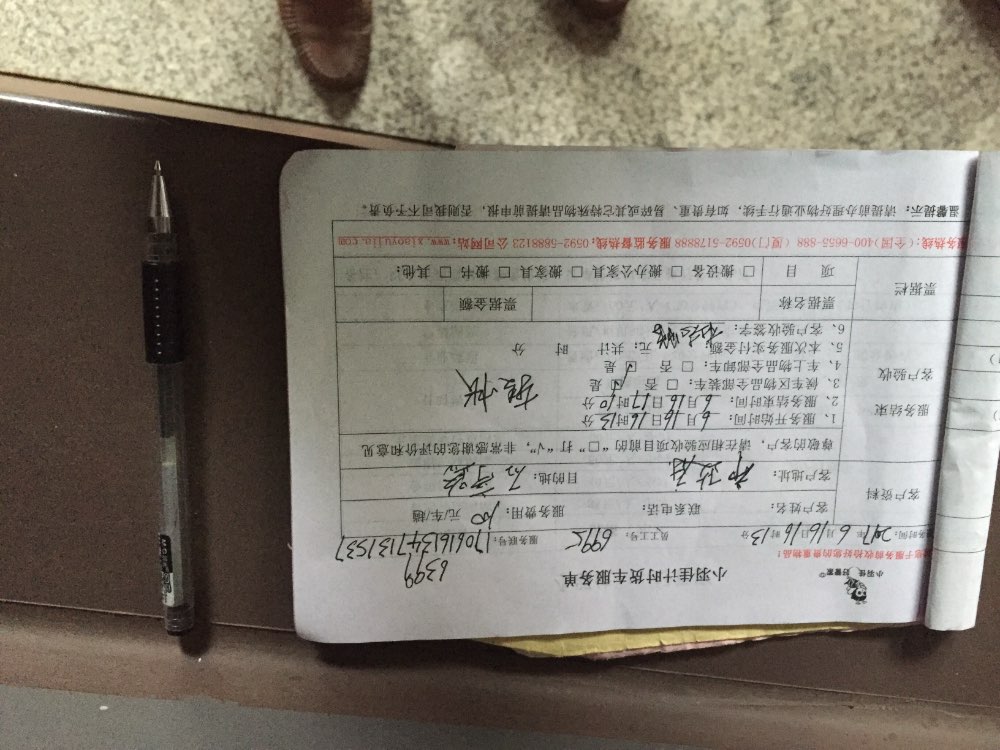 小羽佳 好管家
小羽佳计时货车服务单
6399
服务前收检好您的贵重物品:
务时间: 2017年 6月16日16时13分 员工工号: 6995 服务联号:
客户资料
客户姓名: 联系电话: 服务费用: 元/车/趟
客户地址: 目的地:
尊敬的客户,请在相应验收项目前的“□”打“√”,非常感谢您的评价和意见
服务结束
客户验收
1、服务开始时间: 6月16日16时13分
2、服务结束时间: 6月16日17时10分
3、候车区物品全部装车: □ 否 □ 是
4、车上物品全部卸车: □ 否 □ 是
5、本次服务实付金额: 元; 共计 时 分
6、客户验收签字:
票据栏
票据名称 票据金额
项 目 □ 搬设备 □ 搬办公家具 □ 搬家具 □ 搬书 □ 其他:
服务热线:(全国)400-6655-888 (厦门)0592-5178888 服务监督热线:0592-5888123 公司网站:www.xiaoyujia.com
温馨提示: 请提前办理好物业通行手续,如有贵重、易碎或其它特殊物品请提前申报,否则我司不予负责。